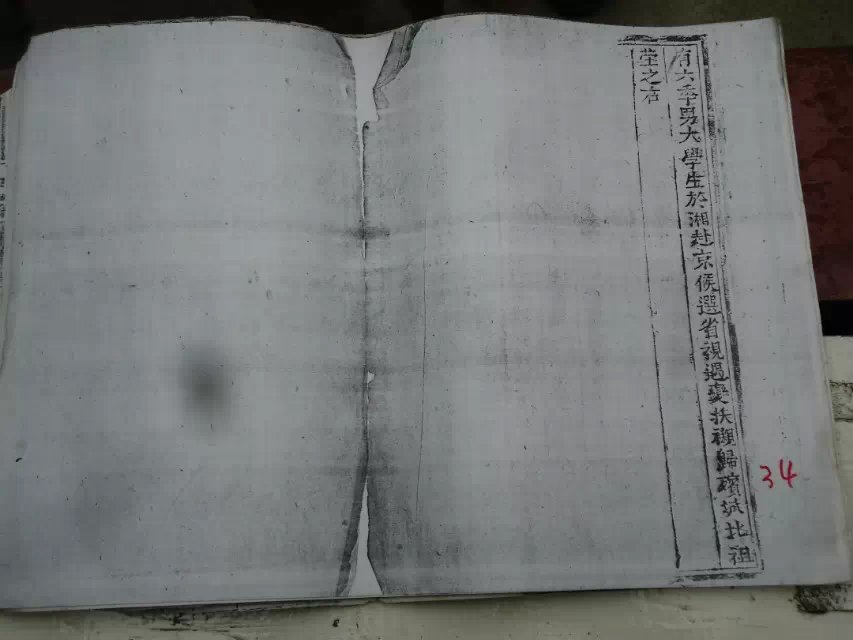 有六季男大學生於湘赴京候選省視遇變扶櫬歸殯城北祖
塋之右
34